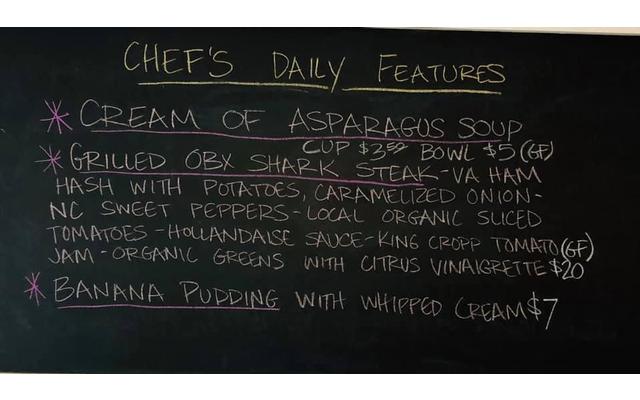 CHEF'S DAILY FEATURES
* CREAM OF ASPARAGUS SOUP
CUP $3.50 BOWL $5 (GF)
* GRILLED OBX SHARK STEAK - VA HAM
HASH WITH POTATOES, CARAMELIZED ONION -
NC SWEET PEPPERS - LOCAL ORGANIC SLICED
TOMATOES - HOLLANDAISE SAUCE - KING CROPP TOMATO (GF)
JAM - ORGANIC GREENS WITH CITRUS VINAIGRETTE $20
* BANANA PUDDING WITH WHIPPED CREAM $7